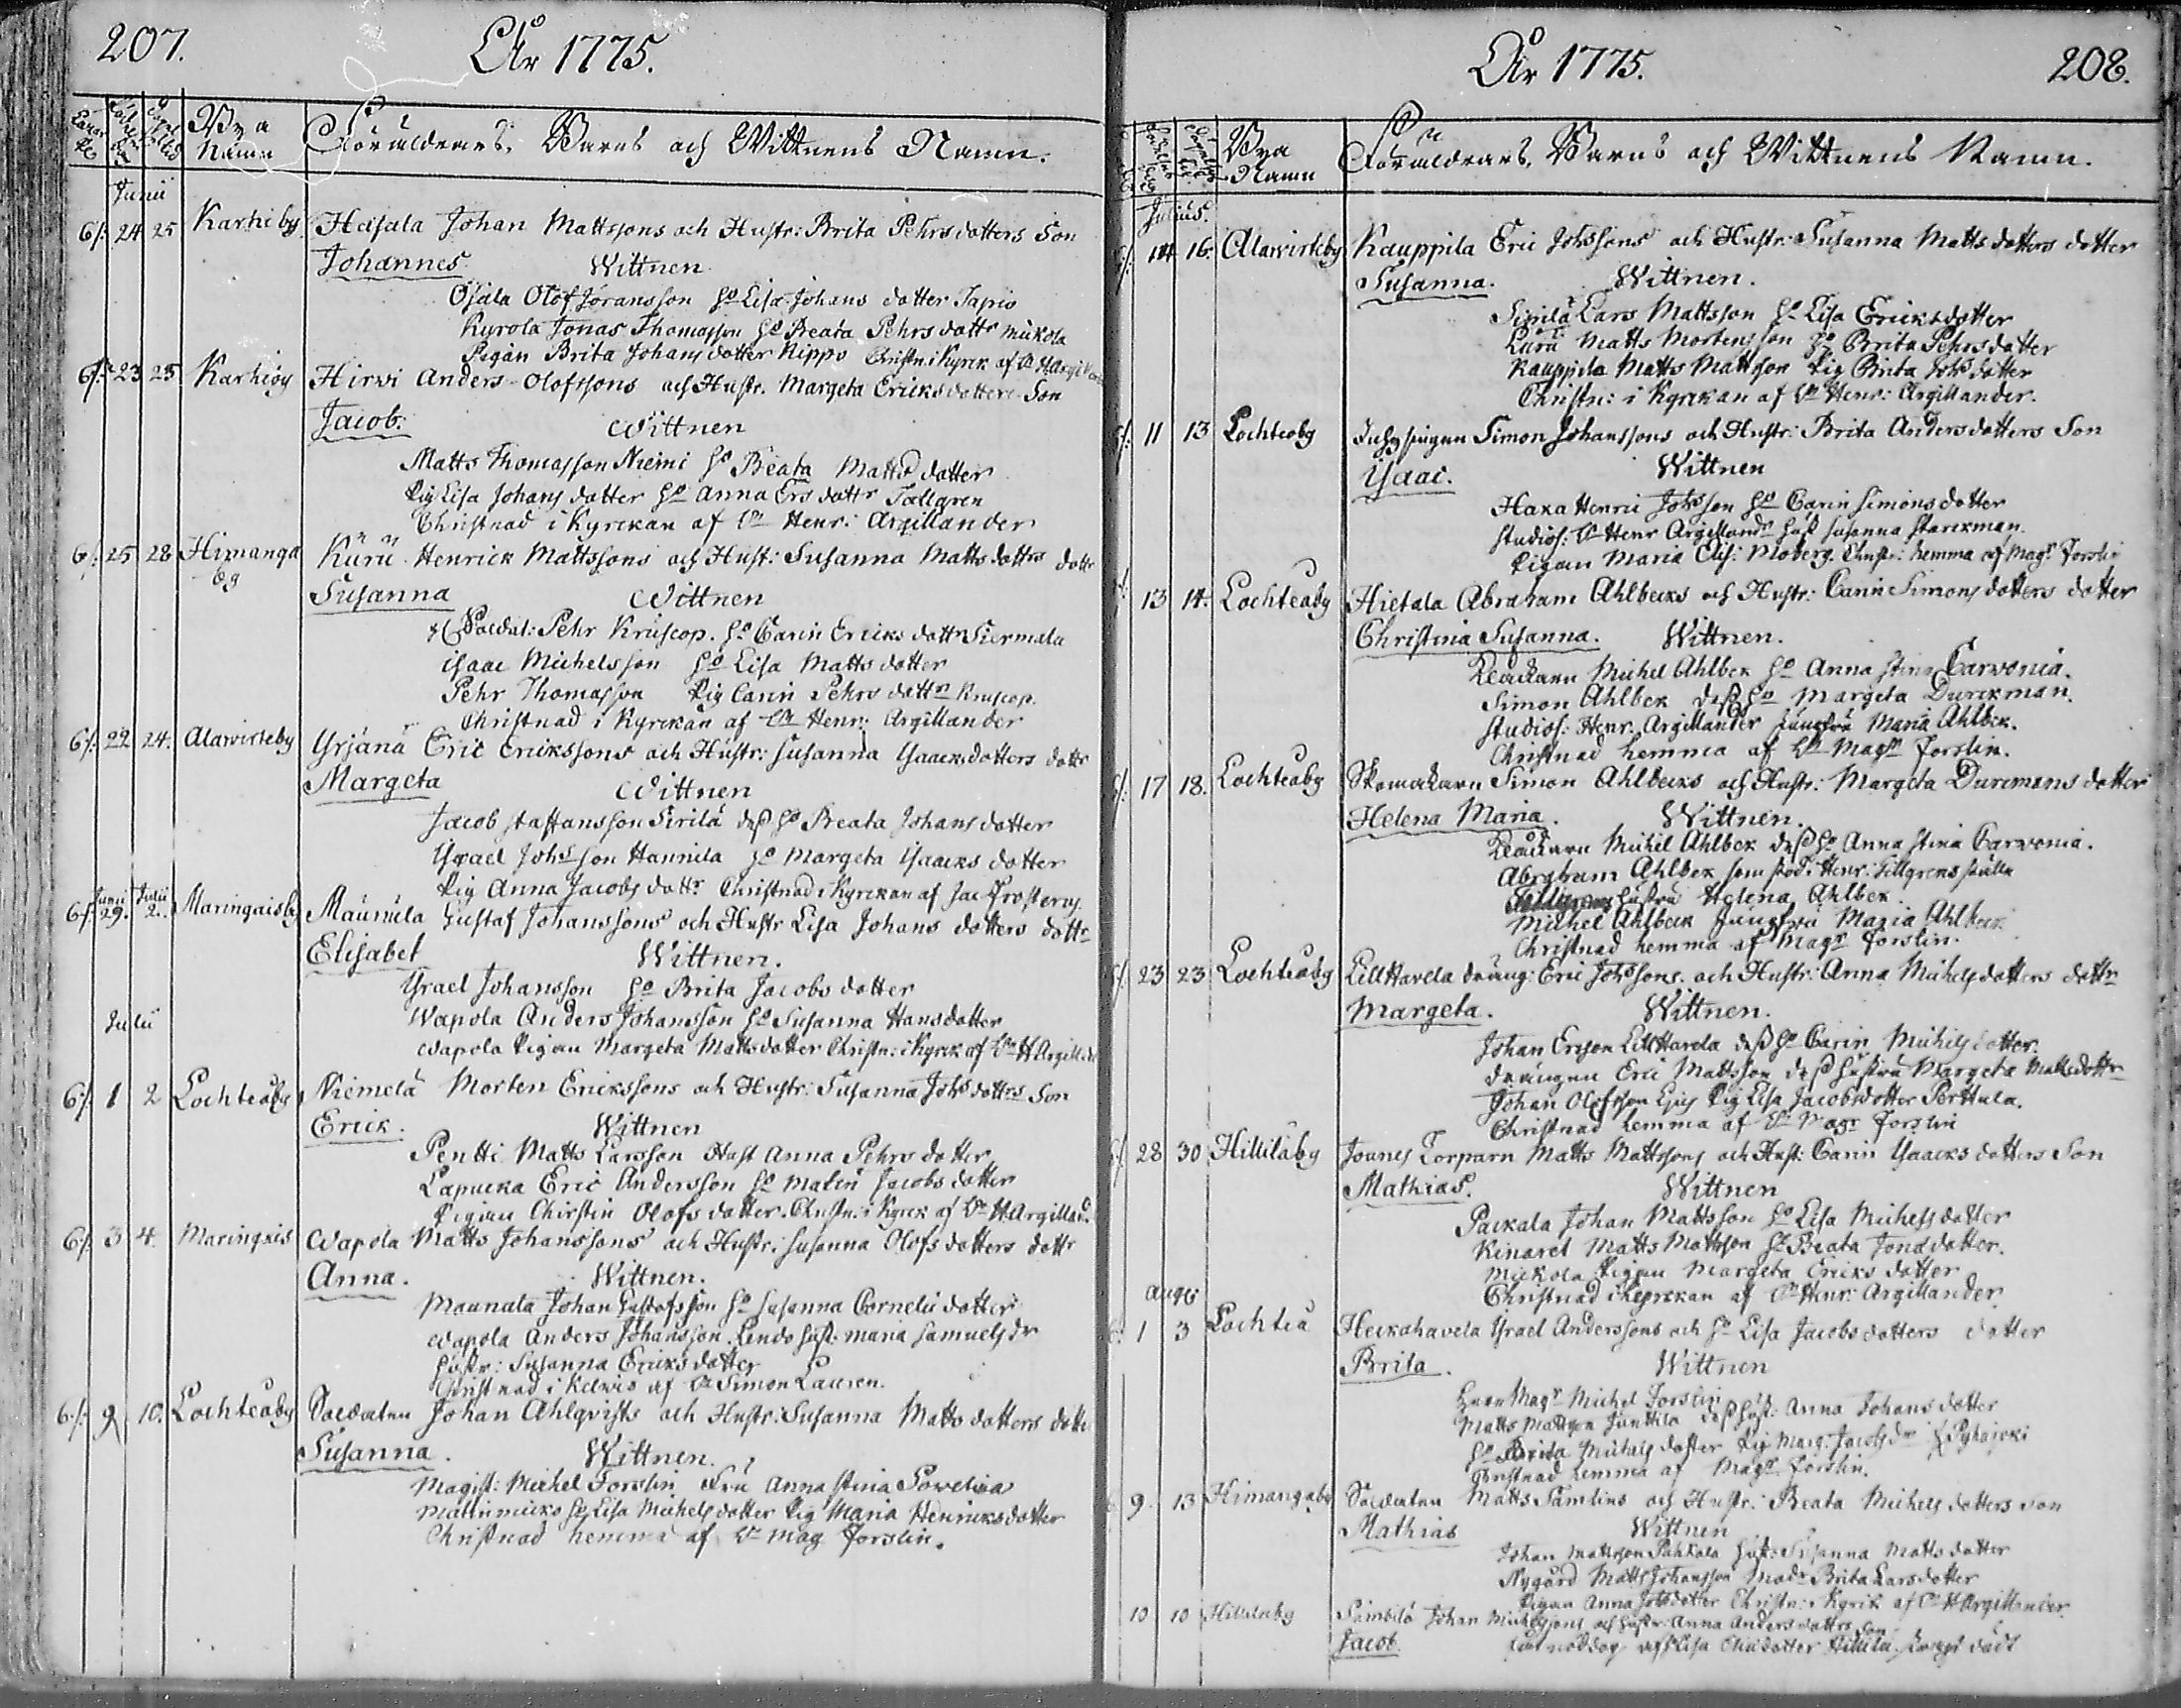 207.
År 1775.
Bya Namn
Föräldrars, Barns och Wittnens Namn.
Junii
6/. 24 25 Karhiby Hasala Johan Mattssons och Hustr: Brita Pehrsdotters Son
Johannes Wittnen
Ojala Olof Joransson Ho Lisa Johans dotter Tapio
Kyrola Jonas Thomasson Ho Beata Pehrs dottr Mickola
Pigan Brita Johans dotter Nippo Christn. i Kyrck af
6/. 23 25 Karhiby Hirwi Anders Olofssons och Hustr. Margeta Ericksdotters Son
Jacob. Wittnen
Matts Thomasson Niemi Ho Beata Matts dotter
Pig Lisa Johans dotter Ho Anna Ers dottr Tallgren
Christnad i Kyrckan af Hr Henr: Argillander
6/. 25 28 Himanga by Kuru Henrick Mattssons och Hust: Susanna Matts dottrs dottr
Susanna Wittnen
Soldat: Pehr Kruscop. Ho Carin Ericks dottr Siermala
Isaac Michelsson Ho Lisa Matts dotter
Pehr Thomasson Pig Carin Pehrs dottr Kruscop.
Christnad i Kyrckan af Hr Henr: Argillander
6/. 22 24. Alawirteby Yrjänä Eric Erickssons och Hustr: Susanna Isaacsdotters dottr
Margeta Wittnen
Jacob Staffansson Sirilä dess Ho Beata Johans dotter
Israel Johsson Hannila Ho Margeta Isaacks dotter
Pig Anna Jacobs dottr Christnad i Kyrckan af Jac Frosterus
6/. Junii 29. Julii 2. Maringaisby Maunula Gustaf Johanssons och Hustr Lisa Johans dotters dottr
Elisabet Wittnen.
Israel Johansson Ho Brita Jacobs dotter
Wapola Anders Johansson Ho Susanna Hansdotter
Wapola Pigan Margeta Mattsdotter Christn: i Kyrck af Hr H Argill
Julii
6/. 1 2 Lochteåby Niemelä Morten Erickssons och Hustr: Susanna Johs dottrs Son
Erick. Wittnen
Pentti Matts Larsson Hust Anna Pehrs dotter
Lapucka Eric Andersson Ho Malin Jacobs dotter
Pigan Chirstin Olofs dotter. Christn: i Kyrck af Hr H Argilland.
6/. 3 4. Maringais Wapola Matts Johanssons och Hustr: Susanna Olofs dotters dottr
Anna. Wittnen.
Maunula Johan Gustafsson Ho Susanna Cornelii dotter
Wapola Anders Johansson Hust: Maria Samuels dr
Hustr: Susanna Ericks dotter
Christnad i Kelwio af Hr Simon Lauren.
6/. 9 10. Lochteåby Soldaten Johan Ahlqvists och Hustr: Susanna Matts dotters dotter
Susanna. Wittnen.
Magist: Michel Forslin Fru Anna Stina
Ho Lisa Michels dotter Pig Maria Henricksdotter
Christnad hemma af Hr Mag Forslin.
År 1775.
208.
Bya Namn
Föräldrars, Barns och Wittnens Namn.
Julius.
14 16. Alawirteby Kauppila Eric Johssons och Hustr: Susanna Matts dotters dotter
Susanna. Wittnen.
Sirilä Lars Mattsson Ho Lisa Ericksdotter
Luru Matts Mortensson Ho Brita Pehrsdotter
Kauppila Matts Mattsson Pig Brita Johs dotter
Christn: i Kyrckan af Hr Henr: Argillander.
11 13 Lochteoby Simon Johanssons och Hustr: Brita Andersdotters Son
Isaac. Wittnen
Haxa Henric Johsson Ho Carin Simonsdotter
Studios: Hr Henr Argillandr Susanna Starckman
Pigan Maria Elis: Moberg. Christn: hemma af Magr Forslin
13 14. Lochteåby Hietala Abraham Ahlbecks och Hustr: Carin Simons dotters dotter
Christina Susanna. Wittnen.
Klockarn Michel Ahlbck Ho Anna Stina Carwonia.
Simon Ahlbck dess Ho Margeta Durckman.
Studios: Henr. Argillander Jungfru Maria Ahlbck.
Christnad hemma af Hr Magr Forslin.
17 18. Lochteåby Skomackarn Simon Ahlbecks och Hustr: Margeta Durcmans dotter
Helena Maria. Wittnen.
Klockarn Michel Ahlbck dess Ho Anna Stina Carwonia.
Abraham Ahlbck som stod: Henr: Tillgrens ställe
Hustru Helena Ahlbck
Michel Ahlbeck Jungfru Maria Ahlbeck
Christnad hemma af Magr Forslin.
23 23 Lochteåby LillHavela dräng: Eric Johssons. och Hustr: Anna Michelsdotters dottr
Margeta. Wittnen.
Johan Ersson LillHavela dess Ho Carin Michelsdotter
Drängen Eric Mattsson dess Hustru Margeta Mattsdottr
Johan Olofsson Pig Lisa Jacobsdotter Perttula.
Christnad hemma af Hr Magr Forslin
28 30 Hillilåby Torparn Matts Mattssons och Hust: Carin Isaacks dotters Son
Mathias. Wittnen
Packala Johan Mattsson Ho Lisa Michelsdotter
Kinaret Matts Mattsson Ho Beata Jonsdotter.
Mickola Pigan Margeta Ericks dotter
Christnad i Kyrckan af Hr Henr: Argillander
Augti
1 3 Lochteå Heickahavela Israel Anderssons och Ho Lisa Jacobsdotters dotter
Brita. Wittnen
Herr Magr Michel Forslin
Matts Mattsson Junttila dess Hust: Anna Johansdotter
Ho Brita Michels dotter Pig Marg. Jacobs dr Pyhäjocki
Christnad hemma af Magr Forslin.
9. 13 Himangaby Soldaten Matts Samlins och Hustr: Beata Michels dotters Son
Mathias Wittnen
Johan Mattsson Pahkala Hust: Susanna Matts dotter
Nygård Matts Johansson Modr Brita Larsdotter
Pigan Anna Johsdotter Christn: i Kyrck af Hr H Argillander
10 10 Hillilaby Johan Michelssons och Hustr: Anna Andersdottrs Son
Jacob. nöddop af Lisa dotter Hillilä.